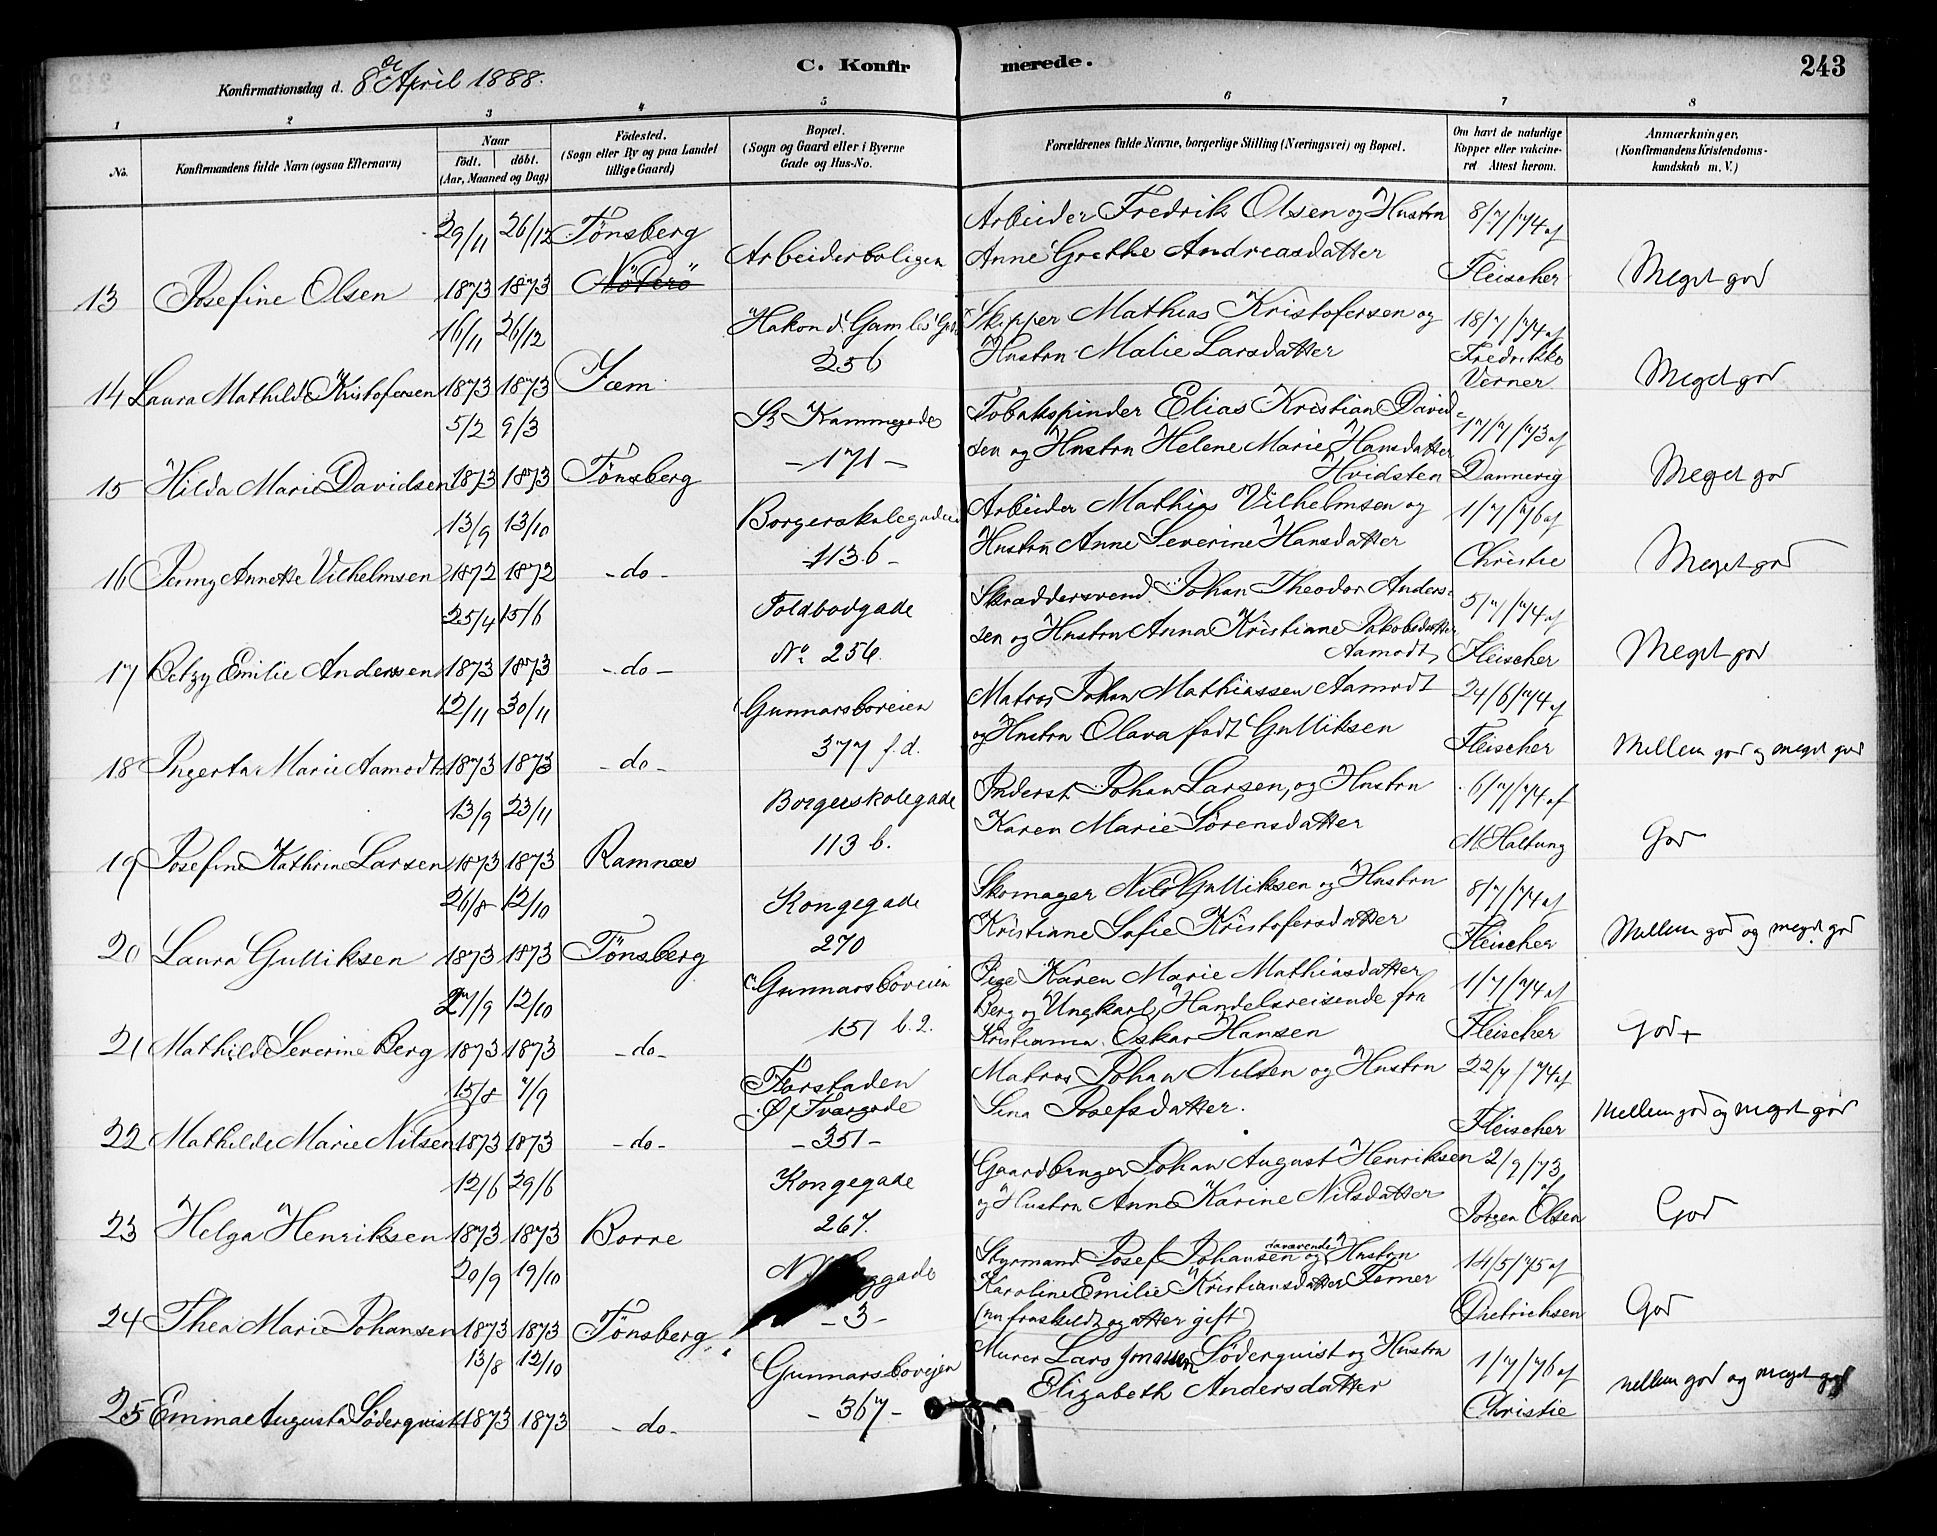 243
C. Konfirmerede.
Konfirmationsdag d. 8de April 1888.
1 2 3 4 5 6 7 8
No.
Konfirmandens fulde Navn (ogsaa Efternavn)
Naar
födt. döbt.
(Aar, Maaned og Dag)
Födested.
(Sogn eller By og paa Landet
tillige Gaard)
Bopæl.
(Sogn og Gaard eller i Byerne
Gade og Hus-No.
Forældrenes fulde Navne, borgerlige Stilling (Næringsvei) og Bopæl.
Om havt de naturlige
Kopper eller vakcine-
ret Attest herom.
Anmærkninger.
(Konfirmandens Kristendoms-
kundskab m. V.)
29/11 26/12 Tønsberg
Arbeiderboligen
Arbeider Fredrik Olsen og Hustru
Anne Grethe Andreasdatter
8/7/74 af
Fleischer
13 Josefine Olsen 1873 1873 Nøterø
Meget god
16/11 26/12
Hakon d. Gamles Gd.
256
Skipper Mathias Kristofersen og
Hustru Malie Larsdatter
18/7/74 af
Fredrikke
Verner
14 Laura Mathilde Kristofersen 1873 1873 Sem
Meget god
5/2 9/3
St. Kammegade
- 171 -
Tobakspinder Elias Kristian David-
sen og Hustru Helene Marie Hansdatter
Hvidsten
17/7/73 af
Dannevig
15 Hilda Marie Davidsen 1873 1873 Tønsberg
Meget god
13/9 13/10
Borgerskolegaden
113 b -
Arbeider Mathias Vilhelmsen og
Hustru Anne Severine Hansdatter
1/7/76 af
Christie
16 Jenny Annette Vilhelmsen 1872 1872 - do -
Meget god
25/4 15/6
Toldbodgade
No. 256.
Skræddersvend Johan Theodor Anders-
sen og Hustru Anna Kristiane Jakobsdatter
Aamodt,
5/7/74 af
Fleischer
17 Betzy Emilie Anderssen 1873 1873 - do -
Meget god
12/11 30/11
Gunnarsboveien
377 f. d.
Matros Johan Mathiassen Aamodt
og Hustru Olava født Gulliksen
24/6/74 af
Fleischer
18 Ingerta Marie Aamodt 1873 1873 - do -
Mellem god og meget god
13/9 23/11
Borgerskolegade
113 b.
Inderst Johan Larsen, og Hustru
Karen Marie Sørensdatter
6/7/74 af
M. Haltung
19 Josefine Kathrine Larsen 1873 1873 Ramnæs
God
26/8 12/10
Kongegade
270
Skomager Nils Gulliksen og Hustru
Kristiane Sofie Kristofersdatter
8/7/74 af
Fleischer
20 Laura Gulliksen 1873 1873 Tønsberg
Mellem god og meget god
27/9 12/10
Gunnarsboveien
151 b. 2.
Pige Karen Marie Mathiasdatter
Berg og Ungkarl, Handelsreisende fra
Kristiania Oskar Hansen
1/7/74 af
Fleischer
21 Mathilde Severine Berg 1873 1873 - do -
God +
15/8 7/9
Forstaden
Ø. Tværgade
- 351 -
Matros Johan Nilsen og Hustru
Sina Josefsdatter.
22/7/74 af
Fleischer
22 Mathilde Marie Nilsen 1873 1873 - do -
Mellem god og meget god
12/6 29/6
Kongegade
267.
Gaardbruger Johan August Henriksen
og Hustru Anne Karine Nilsdatter
2/9/73 af
Jørgen Olsen
23 Helga Henriksen 1873 1873 Borre
God
20/9 19/10
- 3 -
Styrmand Josef Johansen og daværende Hustru
Karoline Emilie Kristiansdatter
(nu fraskildt og atter gift)
14/5/75 af
Dietrichsen
24 Thea Marie Johansen 1873 1873 Tønsberg
God
13/8 12/10
Gunnarsboveien
- 367 -
Murer Lars Jonassen Söderquist og Hustru
Elizabeth Andersdatter
1/7/76 af
Christie
25 Emma Augusta Söderquist 1873 1873 - do -
mellem god og meget god